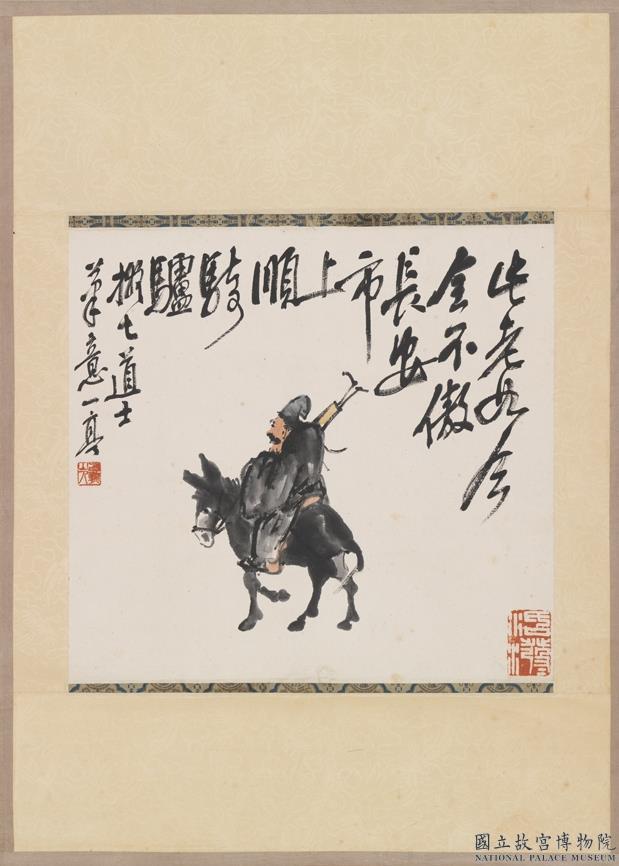 此老如今
全不傲
長安
市
上
順
騎
驢
擬七道士
筆意一亭
國立故宮博物院
NATIONAL PALACE MUSEUM